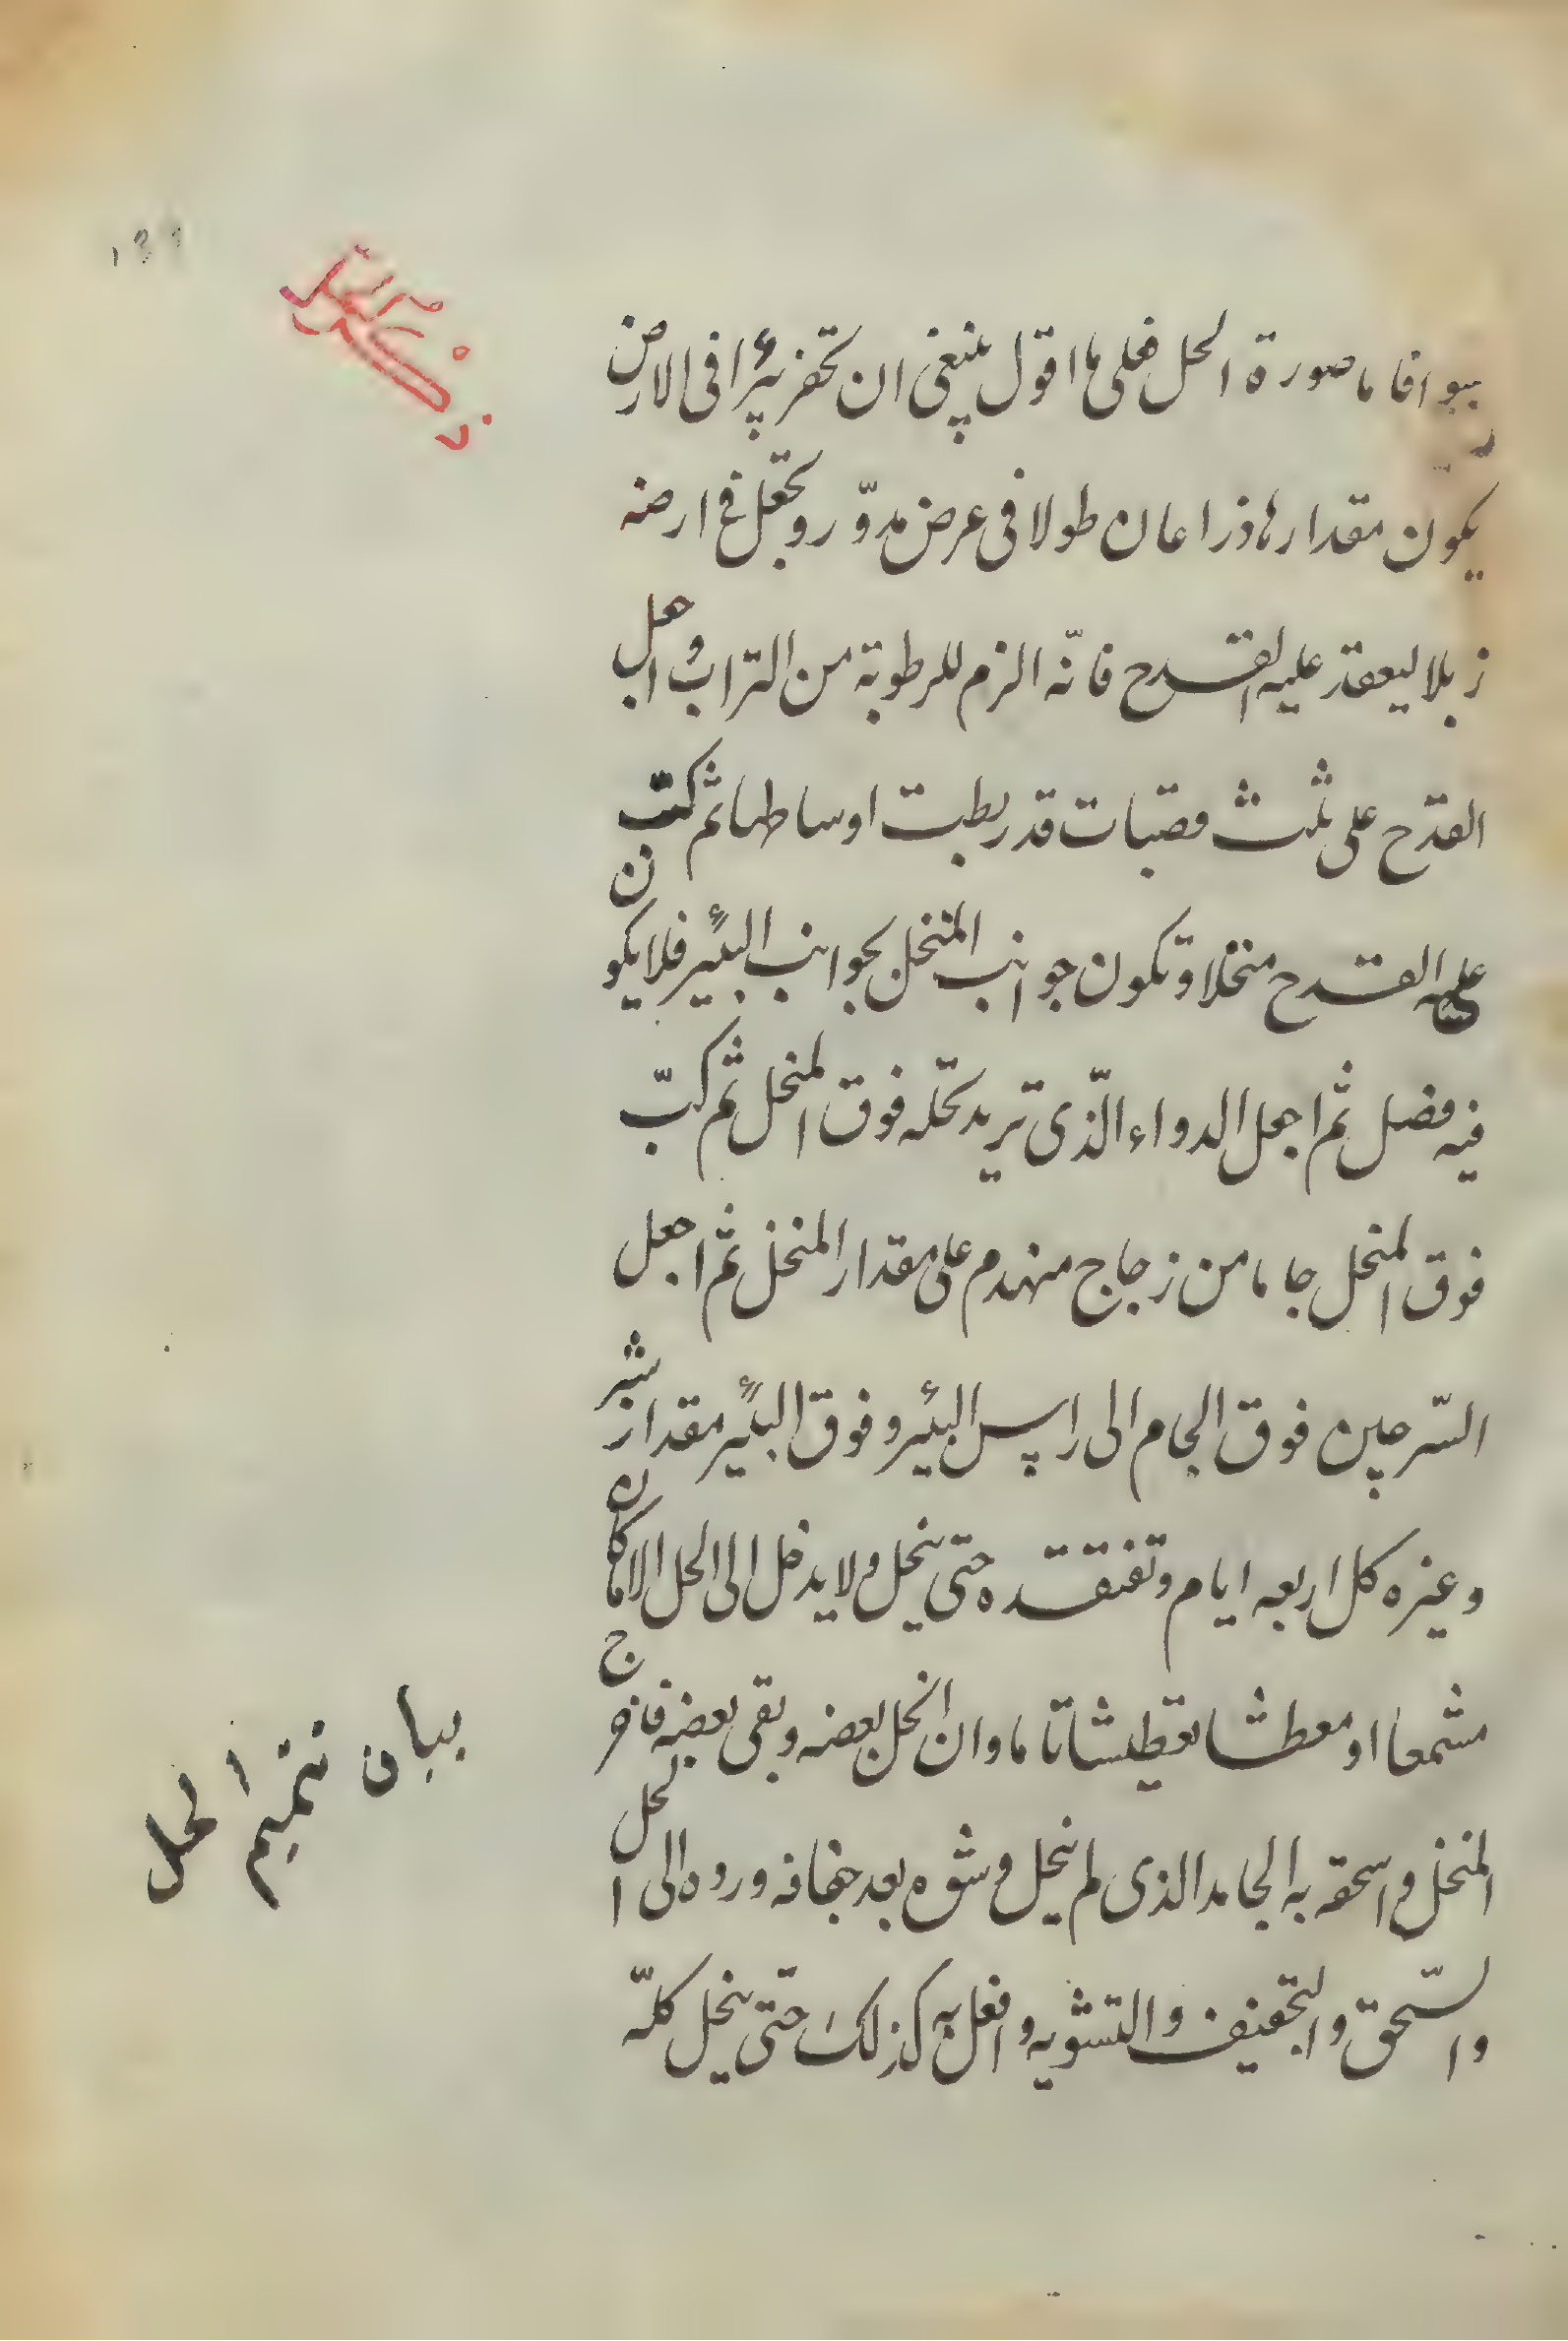 يبوافا ما صورة الحل فعلى ما اقول ينبغى ان تحفر بئرا فى الارض
يكون مقدارها ذراعان طولا فى عرض مدوّر وتجعل فى ارضه
زبلا ليعقد عليه القدح فانّه الزم للرطوبة من التراب واجعل
القدح على ثلث قصبات قد ربطت اوساطها ثم كبّ
عليه القدح منخلا وتكون جوانب المنخل بجوانب البئير فلا يكون
فيه فضل ثم اجعل الدواء الّذى تريد تحله فوق المنخل ثم كبّ
فوق المنخل جاما من زجاج مهندم على مقدار المنخل ثم اجعل
السّرجين فوق الجام الى راس البئير وفوق البئير مقدار شبر
وغيره كل اربعه ايام وتفتقده حتى ينحل ولا يدخل الى الحل الا ما كان
مشمعا او معطشا تعطيشا تاما وان انحل بعضه وبقى بعضه فاخرج
المنحل واسحقه به الجامد الذى لم ينحل وشوه بعد جفافه ورده الى الحل
والسّحق والتجفيف والتشويه وافعل به كذلك حتى ينحل كلّه
بيان تتميم الحل